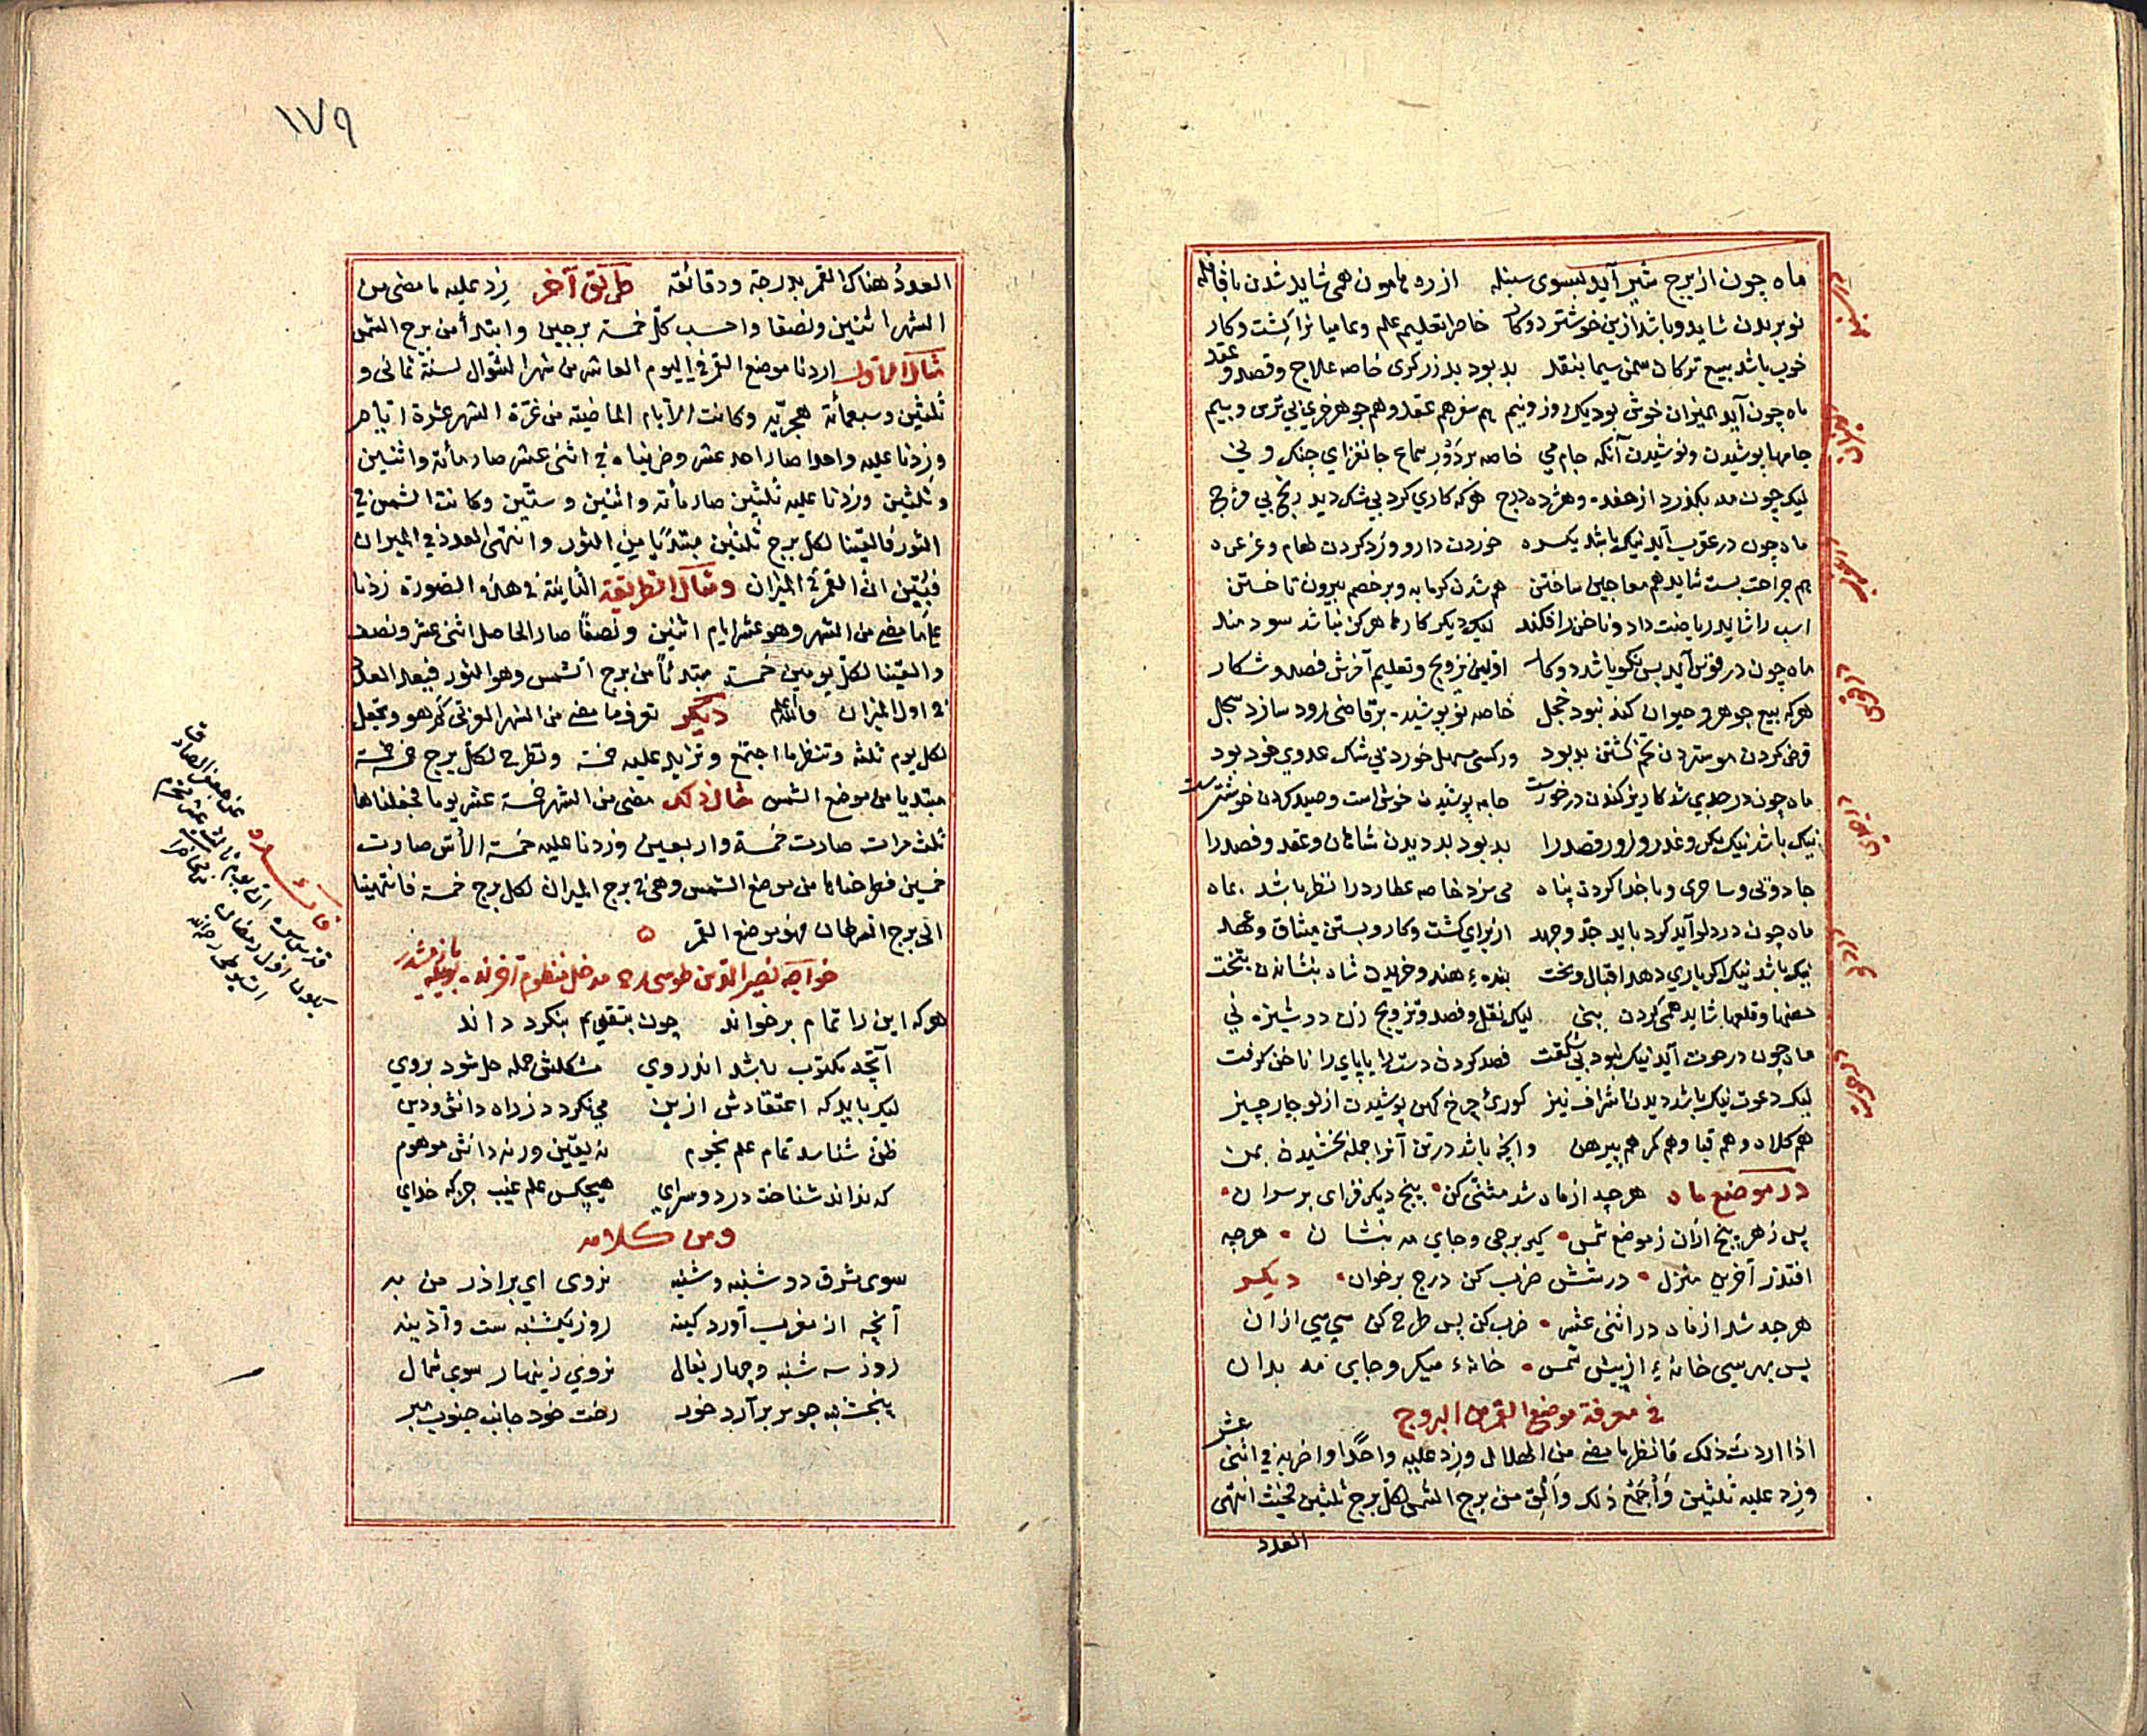 ماه چون از برج شیر آید بسوی سنبله از ره هامون همی شاید شدن با قافله
نو بریدن شاید و باشد ازین خوشتر دوکار خاصه تعلیم علم و عامیانرا کشت و کار
خوب باشد بیع ترکان سمن سیما بنقد بد بود بد زرکری خاصه علاج و فصد و عقد
ماه چون آید بمیزان خوش بود یک روز و نیم هم سفر هم عقد و هم جوهر خری بی ترس و بیم
جامها پوشیدن و نوشیدن آنکه جام می خاصه بر دَوْر سماع جانفزای چنک و نی
لیک چون مه بکذرد از هفده و هژده درج هرکه کاری کرد بی شک دید رنج بی فرج
ماه چون در عقرب آید نیک باشد یکسره خوردن دارو و زد کردن طعام و غرغره
هم جراحت بست شاید هم معاجین ساختن هم شدن کرمابه و بر خصم بیرون تاختن
اسب را شاید ریاضت داد و ناخن را فکند لیک دیکر کارها هرکز نباشد سودمند
ماه چون در قوس آید بس نکو باشد دوکار اولین تزویج و تعلیم آخرش فصد و شکار
هرکه بیع جوهر و حیوان کند نبود خجل خاصه نو پوشید بر قاضی رود سازد سجل
قرض کردن مو ستردن تخم کشتن بد بود ور کسی مسهل خورد بی شک عدوی خود بود
ماه چون در جدی شد کاریز کندن در خورست جامه پوشیدن خوش است و صید کردن خوشترست
نیک باشد نیک مکر و غدر و زور و قصد را بد بود بد دیدن شاهان و عقد و فصد را
جادوئی و ساحری و با خدا کردن پناه می سزد خاصه عطارد را نظر باشد بماه
ماه چون در دلو آید کرد باید جدّ و جهد از برای کشت و کار و بستن میثاق و عهد
نیک باشد نیک اکر یاری دهد اقبال و بخت بندهٔ هند و خریدن شاه بنشاندن بتخت
حصنها و قلعها شاید همی کردن بنی لیک نقل و فصد و تزویج زن دوشیزه نی
ماه چون در حوت آید نیک نبود بی شکفت فصد کردن دست را یا پای را ناخن کرفت
لیک دعوت نیک باشد دیدن اشراف نیز کوری چرخ کهن پوشیدن از نو چار چیز
هم کلاه و هم قبا و هم کمر هم پیرهن وانچه باشد در تن آنرا جمله بخشیدن بمن
در موضع ماه هرچه از ماه شد مثنی کن پنج دیکر فزای بر سر آن
پس ز هر پنج ازان ز موضع شمس کیر برجی و جای مه بنشان هرچه
افتد ز آخرین منزل در شش ضرب کن درج برخوان دیکر
هرچه شد از ماه در اثنی عشر ضرب کن پس طرح کن سی سی ازان
پس بهر سیی خانهٔ از پیش شمس خانهٔ میکیر و جای مه بدان
فی معرفة موضع القمر من البروج
اذا اردت ذلک فانظر ما مضی من الهلال وزد علیه واحدًا واضربه فی اثنی عشر
وزد علیه ثلثین وأجمع ذلک وألق من برج الشمس لکلّ برج ثلثین فحیث انتهی
العدد
السنبله
المیزان
العقرب
القوس
الجدی
الدلو
الحوت
١٧٩
العددُ هناک القمر بدرجة ودقائقه طریق آخر زد علیه ما مضی من
الشهر اثنین ونصفا واحسب کلّ خمسة برجین وابتدأ من برج الشمس
مثال الاول اردنا موضع القمر فی الیوم العاشر من شهر الشوال لسنة ثمانی و
ثلثین وسبعمأئة هجریّه وکانت الایام الماضیة من غرّة الشهر عشرة ایام
وزدنا علیه واحدا صار احد عشر وضربناه فی اثنی عشر صار مأئة واثنین
وثلثین وزدنا علیه ثلثین صار مأئة واثنین وستین وکانت الشمس فی
الثور فالقینا لکل برج ثلثین مبتدیًا من الثور وانتهی العدد فی المیزان
فبُیّن انّ القمر فی المیزان ومثال الطریقة الثانیة فی هذه الصورة زدنا
علی ما مضی من الشهر وهو عشرة ایام اثنین ونصفًا صار الحاصل اثنی عشر ونصف
والقینا لکلّ برجین خمسة مبتدئًا من برج الشمس وهو الثور فبعد العدد
فی اول المیزان والله اعلم دیکر تعرف ما مضی من الشهر العربی کم هو وتجعل
لکل یوم ثلثه وتنظر ما اجتمع وتزاید علیه خمسة وتطرح لکلّ برج خمسة خمسة
مبتدیا من موضع الشمس مثال ذلک مضی من الشهر خمسة عشر یوما فجعلناها
ثلث مرات صارت خمسة واربعین وزدنا علیه خمسة الاس صارت
خمسین فطرحناها من موضع الشمس وهی فی برج المیزان لکل برج خمسة فانتهینا
الی برج السرطان فهو موضع القمر
خواجه نصیر الدین طوسی مدخل منظوم
هرکه این را تمام برخواند چون بتقویم بنکرد داند
آنچه مکتوب باشد اندروی مشکلش جمله حل شود بروی
لیک باید که اعتقادش ازین می نکردد ز راه دانش و دین
ظنّ شناسد تمام علم نجوم نه یقین ورنه دانش موهوم
که نداند شناخت در دو سرای هیچکس علم غیب جز که خدای
ومن کلامه
سوی شرق دو شنبه و شنبه نروی ای برادر من به
آنچه از مغرب آورد کینه روز یکشنبه ست و آذینه
روز سه شنبه و چهار بفال نروی زینهار سوی شمال
پنجشنبه چو سر برآرد خور رخت خود جانب جنوب مبر
فائده
عن جعفر الصادق
قدس سره ان یوم ثالث عشر محرم
یکون اول رمضان من محاضرات
السیوطی رحمه الله